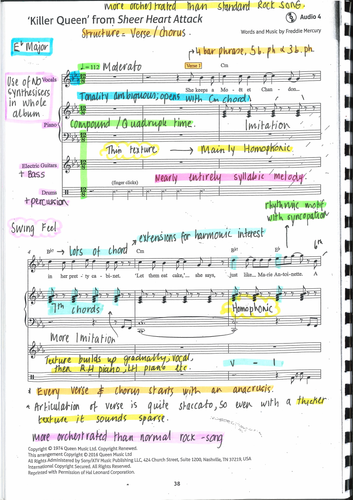 more orchestrated than standard Rock song.
'Killer Queen' from Sheer Heart Attack
Audio 4
Words and Music by Freddie Mercury
Structure = Verse / Chorus.
E♭ Major
4 bar phrase, 5 b. ph & 3 b. ph.
♩. = 112 Moderato
Verse 1
Cm
Use of NO Synthesisers in whole album
Vocals
She keeps a Mo - ët et Chan - don...
Tonality ambiguous, opens with Cm chord
Piano
Compound / Quadruple time.
Imitation
Thin texture → Mainly Homophonic
Electric Guitars
+ Bass
Nearly entirely syllabic melody.
(finger clicks)
Drums
+ percussion
rhythmic motif with syncopation
Swing Feel
Lots of chord extensions for harmonic interest
in her pret - ty ca - bi - net. 'Let them eat cake,'... she says, just like... Ma-rie An-toi-nette. A
7th chords
Homophonic
More Imitation
Texture builds up gradually, vocal, then R.H piano, LH piano etc.
V - I
Every verse & chorus starts with an anacrusis.
Articulation of verse is quite staccato, so even with a thicker texture it sounds sparse.
More orchestrated than normal rock-song
Copyright © 1974 Queen Music Ltd. Copyright Renewed.
This arrangement Copyright © 2016 Queen Music Ltd.
All Rights Administered by Sony/ATV Music Publishing LLC, 424 Church Street, Suite 1200, Nashville, TN 37219, USA
International Copyright Secured. All Rights Reserved.
Reprinted with Permission of Hal Leonard Corporation.
38